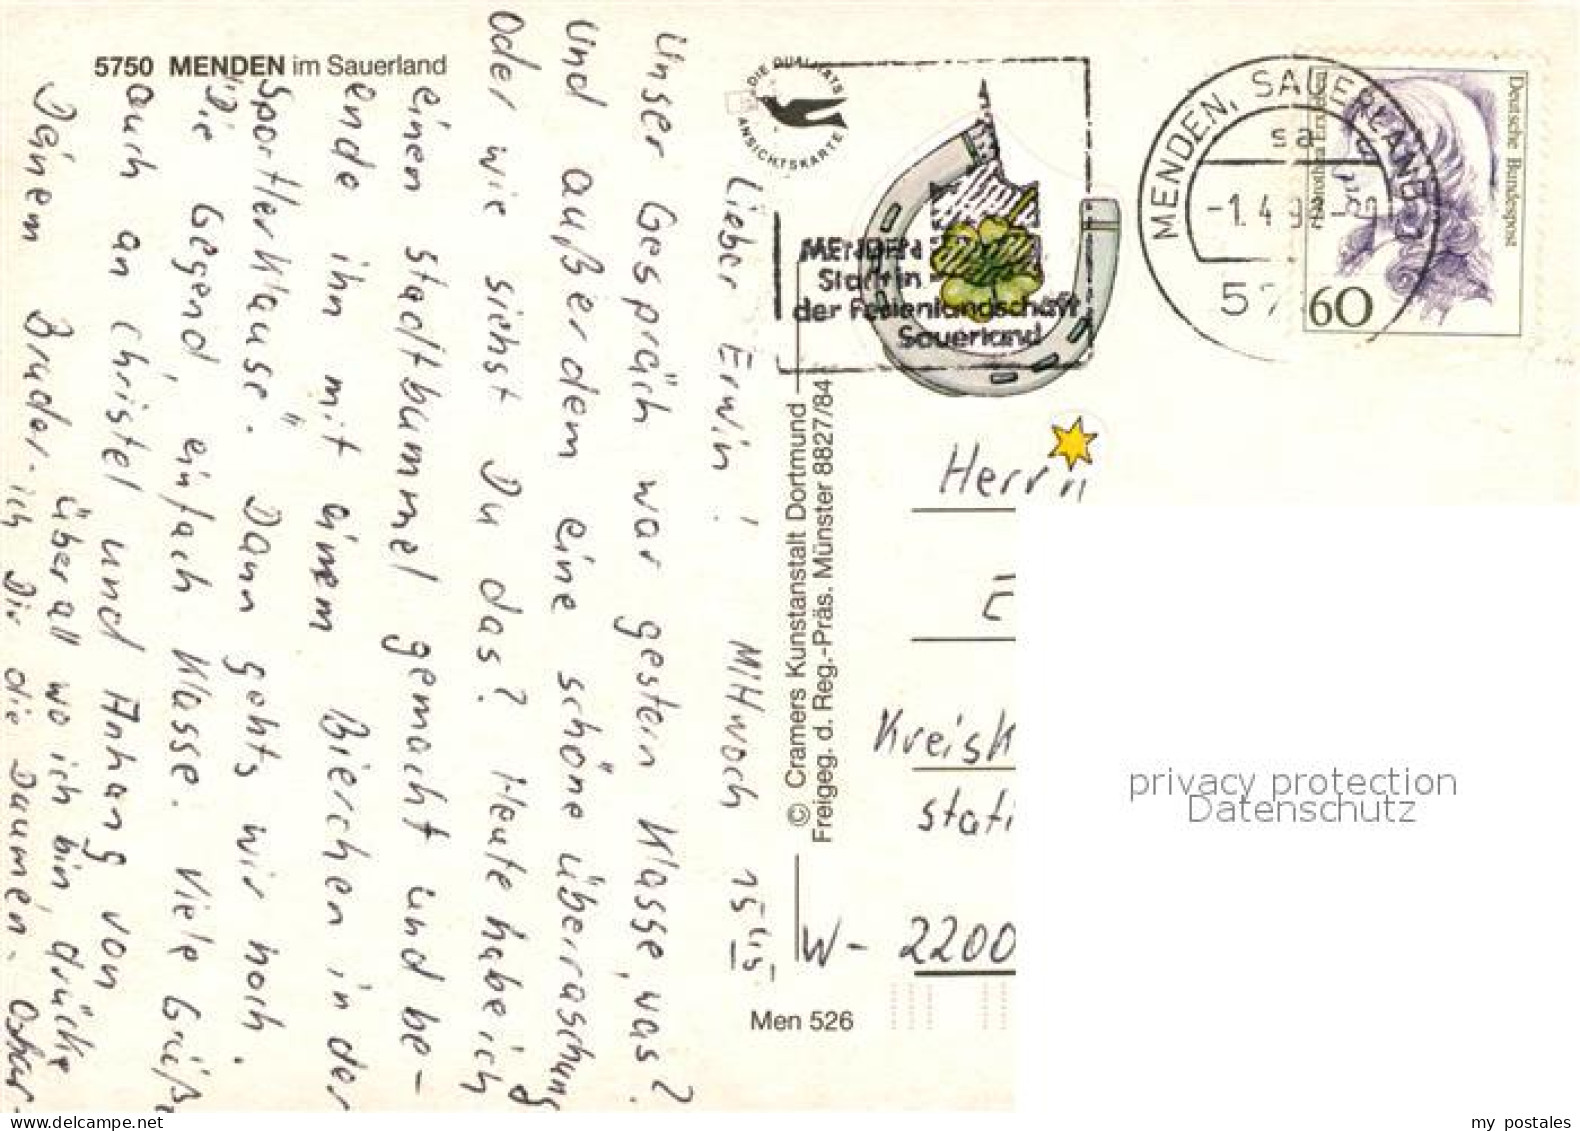 5750 MENDEN im Sauerland
Lieber Erwin! Mittwoch
Unser Gespräch war gestern Klasse, was?
Und außerdem eine schöne überraschung
Oder wie siehst Du das? Heute habe ich
einen stadtbummel gemacht und be-
ende ihn mit einem Bierchen in der
"Sportlerklause". Dann gehts wir noch.
Die Gegend, einfach Klasse. Viele Grüße
auch an Christel und Anhang von
Deinem Bruder.
überall wo ich bin, drücke
ich Dir die Daumen. Oskar.
DIE QUALITÄTS
ANSICHTSKARTE
© Cramers Kunstanstalt Dortmund
Freigeg. d. Reg.-Präs. Münster 8827/84
Men 526
MENDEN
Stadt in
der Ferienlandschaft
Sauerland
MENDEN, SAUERLAND
sa
-1.4.9
57
Deutsche Bundespost
Dorothea Erxleben
60
Herrn
E
Kreisk
stati
W- 2200
privacy protection
Datenschutz
my postales